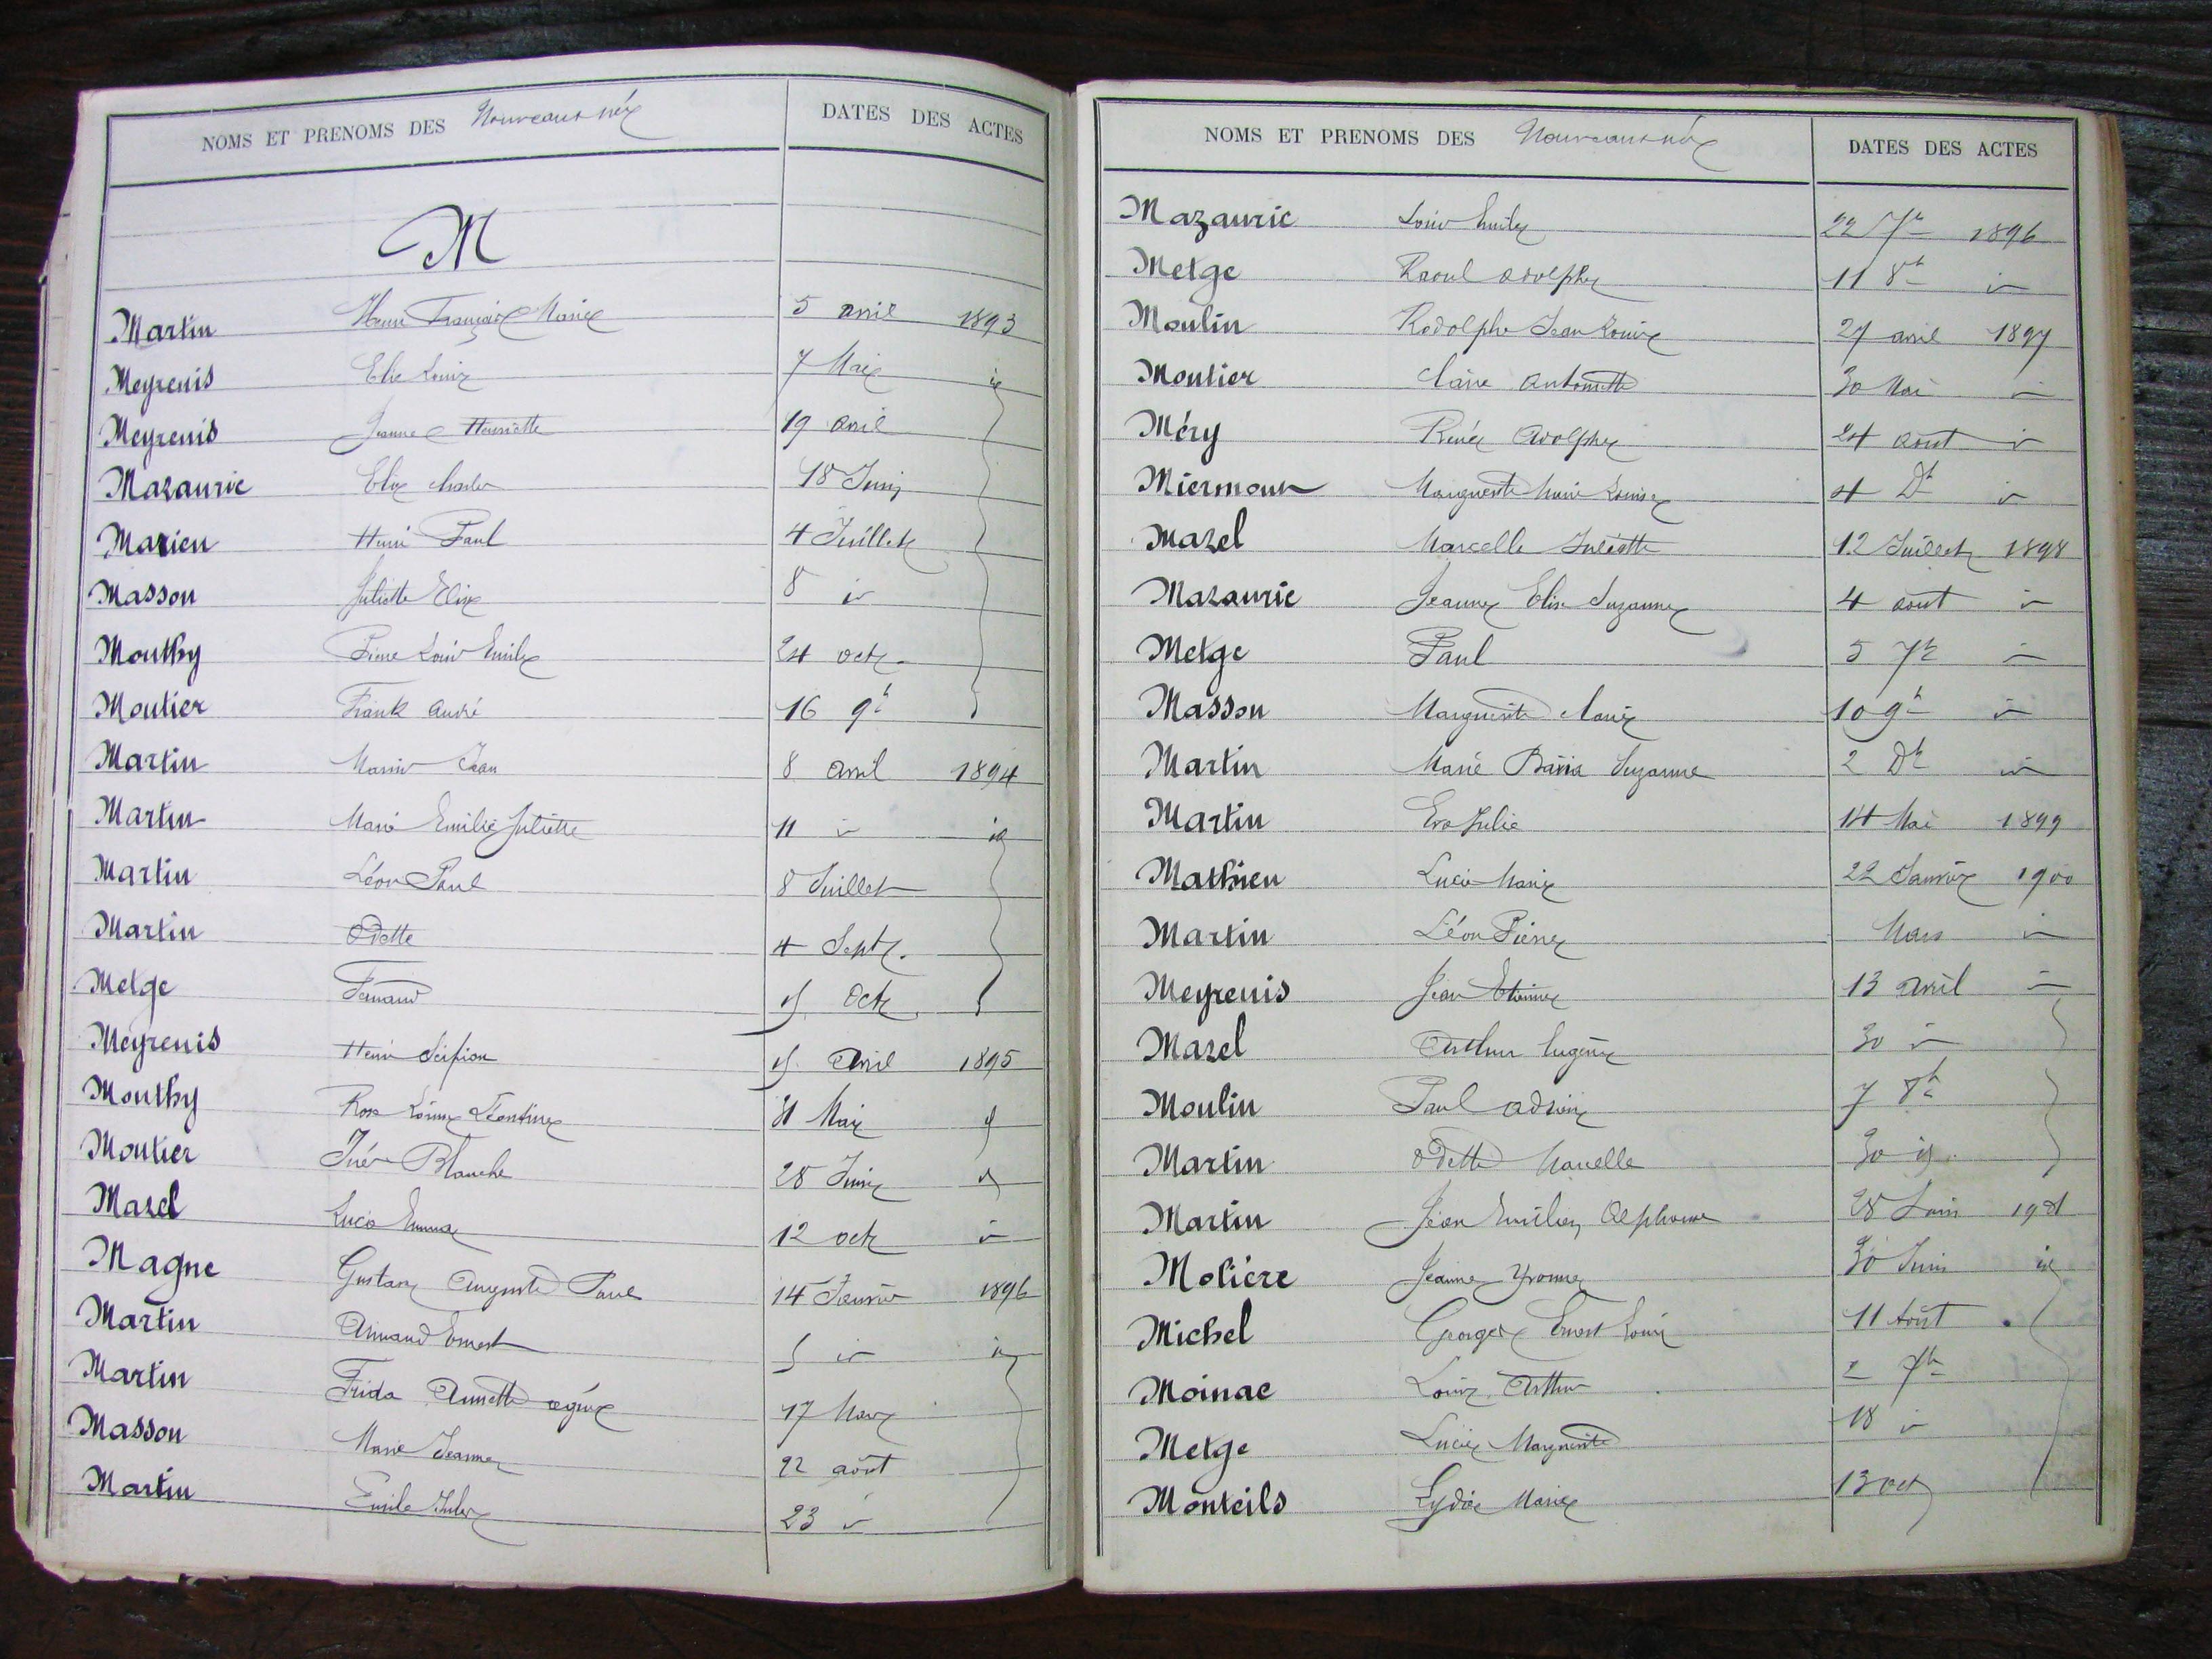 NOMS ET PRENOMS DES Nouveaux nés DATES DES ACTES
M
Martin Henri François Marie 5 avril 1893
Meyrenis Elie Louis 7 Mai id
Meyrenis Jeanne Henriette 19 avril
Mazauric Elie Charles 18 Juin
Marien Henri Paul 4 Juillet
Masson Juliette Elise 8 id
Mouthy Pierre Louis Emile 24 oct
Moutier Frank André 16 9b
Martin Marius Jean 8 avril 1894
Martin Marie Emilie Juliette 11 id id
Martin Léon Paul 8 Juillet
Martin Odette 4 Sept.
Metge Fernand oct
Meyrenis Henri Scipion Avril 1895
Mouthy Rose Léontine Mai id
Moutier Inès Blanche 28 Juin id
Mazel Lucie Emma 12 oct id
Magne Gustave Auguste Paul 14 Janvier 1896
Martin Armand Ernest id id
Martin Frida Annette 17 Mars
Masson Marie Jeanne 22 août
Martin Emile Jules 23 id
NOMS ET PRENOMS DES Nouveaux nés DATES DES ACTES
Mazauric Louis Emile 22 7b 1896
Metge Raoul Adolphe 11 8b id
Moulin Rodolphe Jean Louis 27 avril 1897
Moutier Claire Antoinette 30 Mai id
Méry Renée Adolphe 24 août id
Miermont Marguerite Marie Louise 4 Db id
Mazel Marcelle Juliette 12 Juillet 1898
Mazauric Jeanne Elise Suzanne 4 août id
Metge Paul 5 7b id
Masson Marguerite 10 9b id
Martin Marie Suzanne 2 Db id
Martin Eva Julie 14 Mai 1899
Mathieu Lucie Marie 22 Janvier 1900
Martin Léon Pierre Mars id
Meyrenis Jean Etienne 13 avril id
Mazel Arthur Eugène 30 id
Moulin Paul Adrien 7 8b
Martin Odette 30 id.
Martin Jean Emilien Alphonse 28 1901
Molière Jeanne Yvonne 30 Juin id
Michel Georges Ernest Louis 11 Août
Moinac Louis Arthur 2 7b
Metge Lucie Marguerite 18 id
Monteils Lydie Marie 13 oct